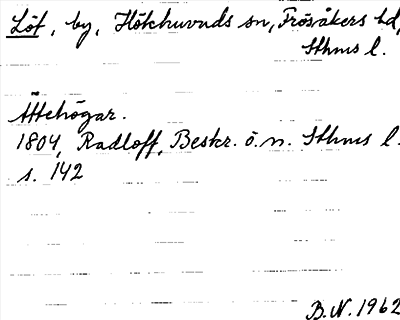 Löt, by, Hökhuvuds sn, Frösåkers hd,
Sthms l.
Ättehögar.
1804, Radloff, Beskr. ö. n. Sthms l.
s. 142
B.N. 1962